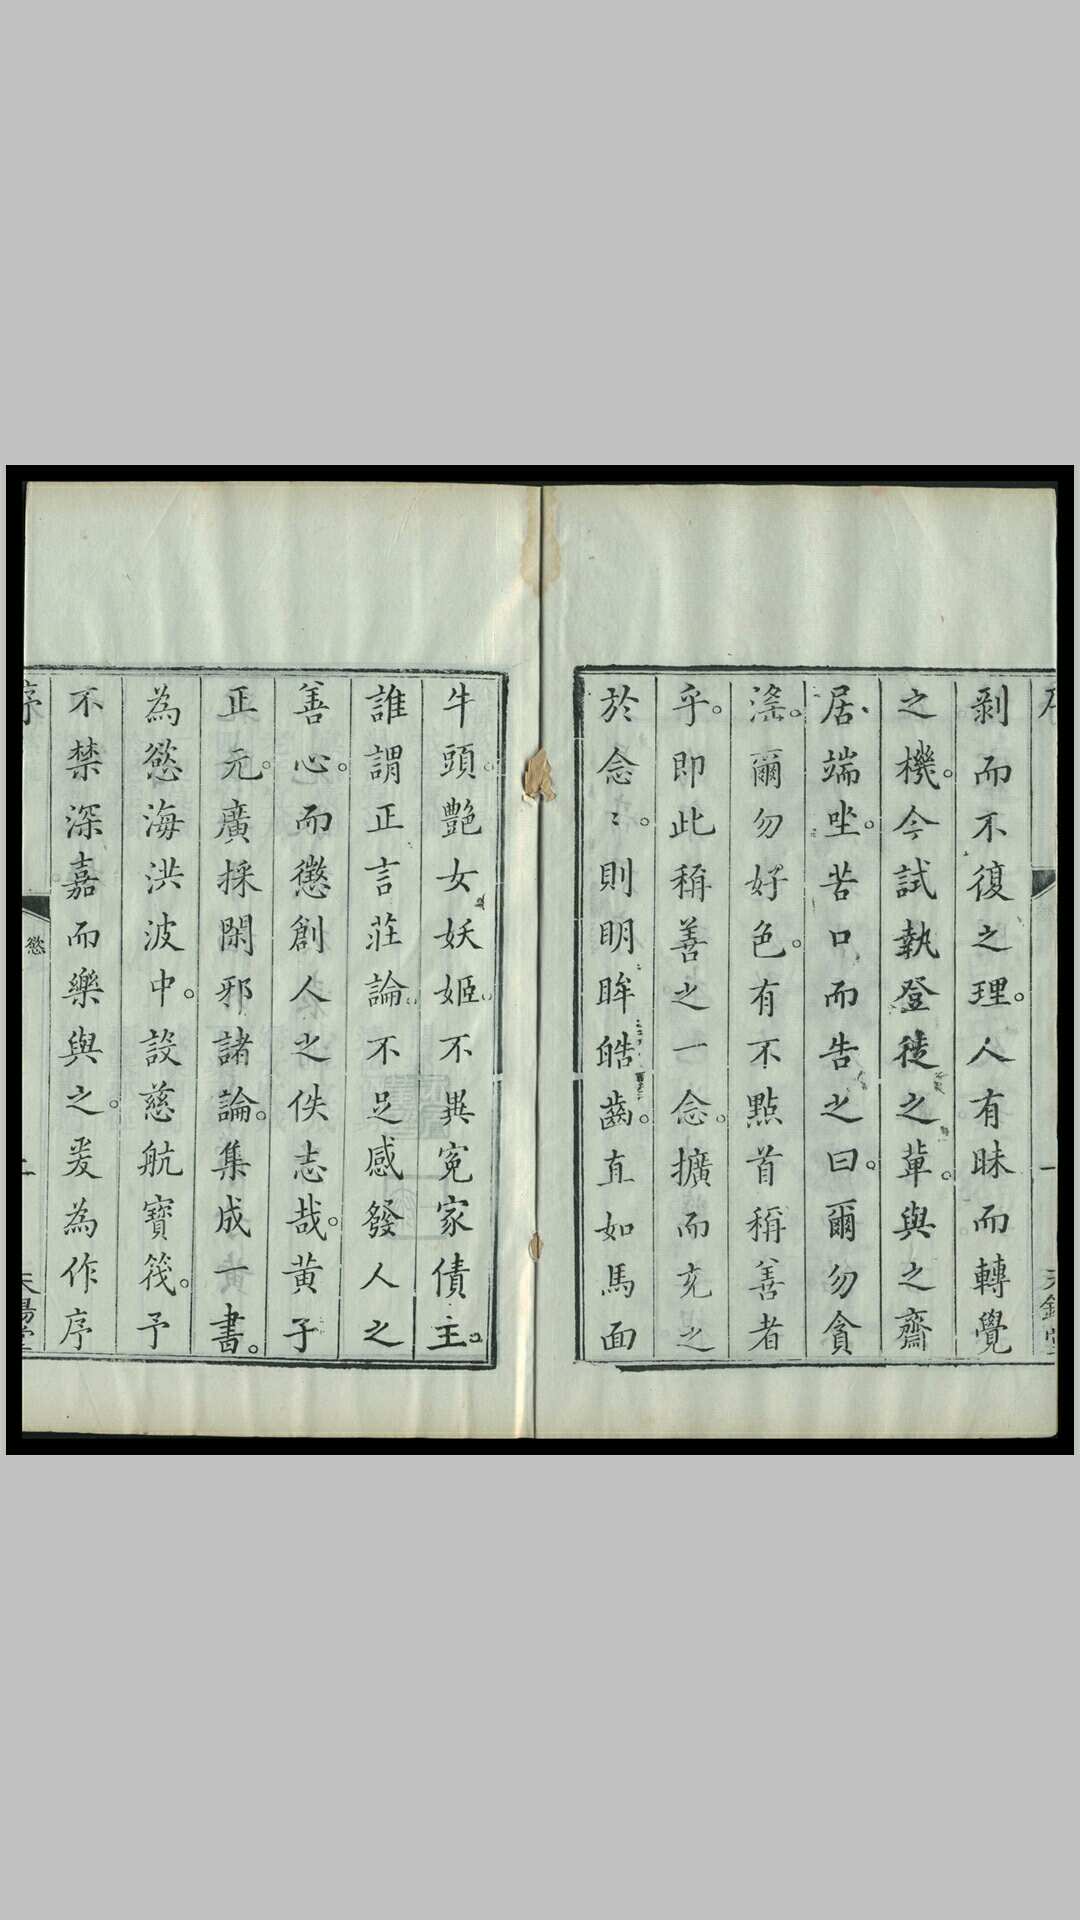 剝而不復之理。人有昧而轉覺
之機。今試執登徒之輩。與之齋
居端坐。苦口而告之曰。爾勿貪
滛。爾勿好色。有不點首稱善者
乎。即此稱善之一念。擴而充之
於念〻。則明眸皓齒。直如馬面
牛頭。艶女妖姬。不異冤家債主。
誰謂正言莊論。不足感發人之
善心。而懲創人之佚志哉。黄子
正元。廣採閑邪諸論。集成一書。
為慾海洪波中。設慈航寶筏。予
不禁深嘉而樂與之。爰為作序
序 慾 二